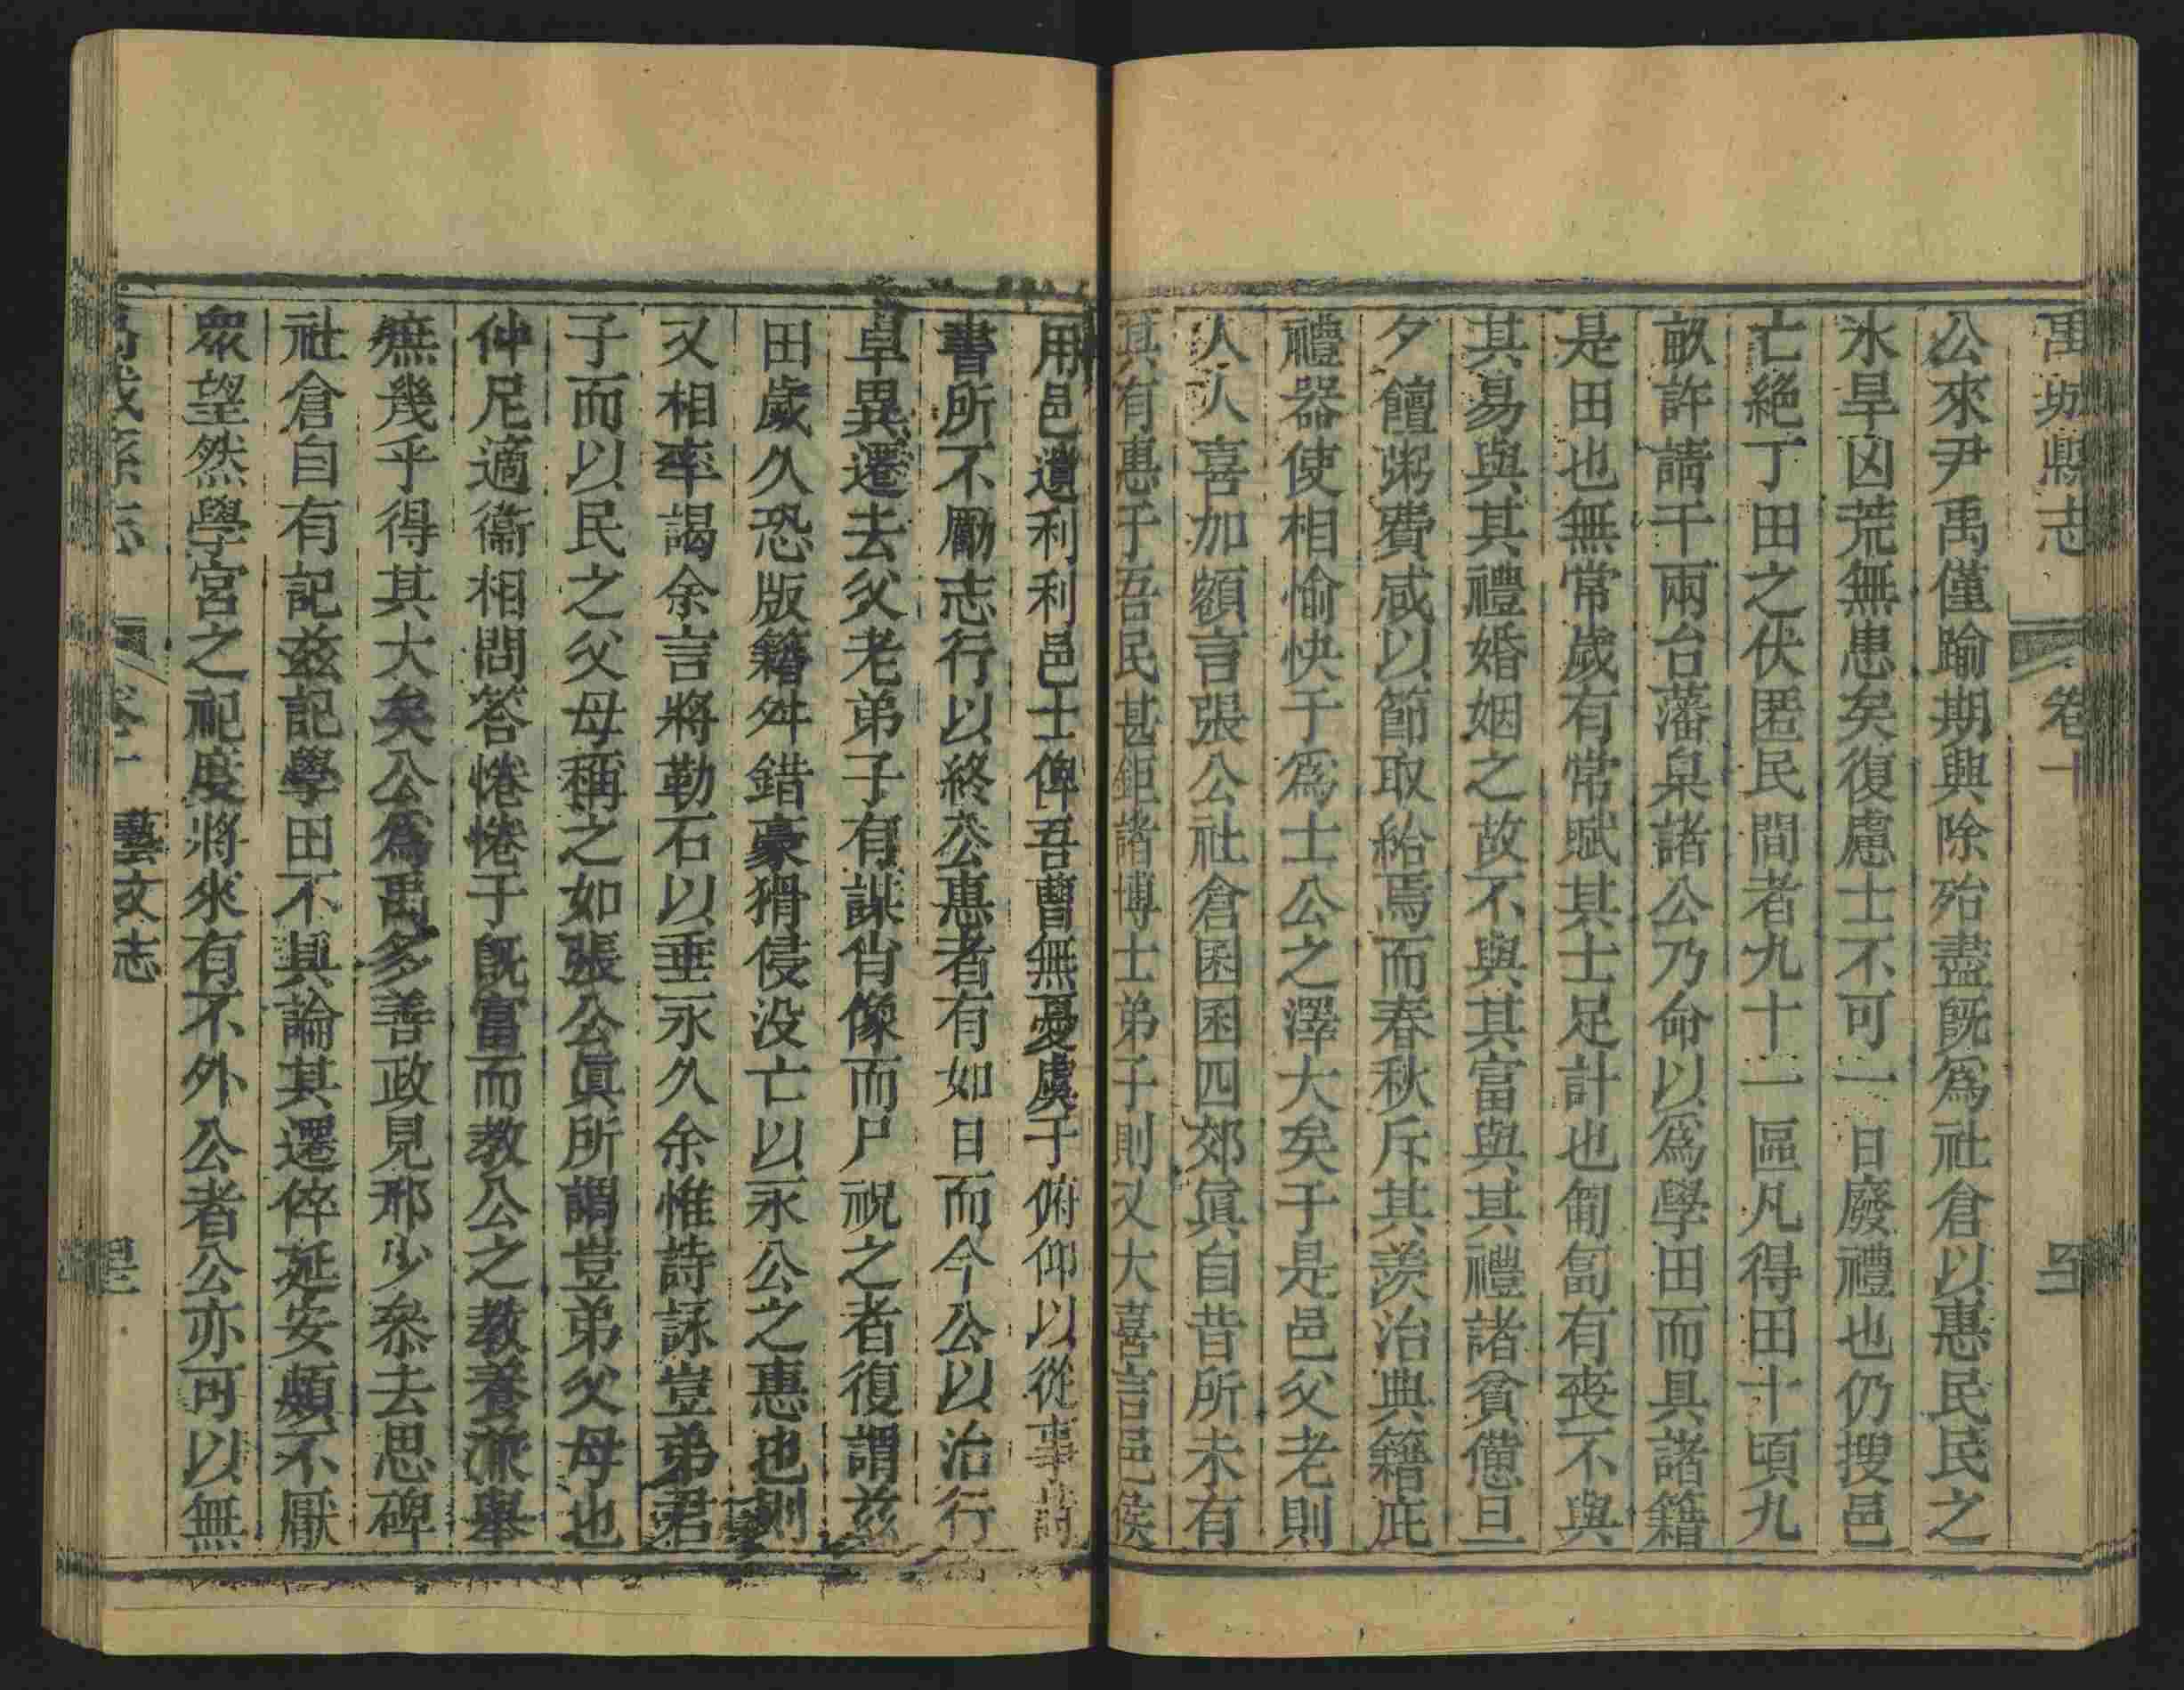 禹城縣志 卷十
公來尹禹僅踰期興除殆盡既爲社倉以惠民民之
水旱凶荒無患矣復慮士不可一日廢禮也仍搜邑
亡絕丁田之伏匿民間者九十二區凡得田十頃九
畝許請于兩台藩臬諸公乃命以爲學田而具諸籍
是田也無常歲有常賦其士足計也匍匐有喪不與
其易與其禮婚姻之故不與其富與其禮諸貧憊旦
夕饘粥費咸以節取給焉而春秋斥其羨治典籍庇
禮器使相愉快于爲士公之澤大矣于是邑父老則
人人喜加額言張公社倉囷囷四郊眞自昔所未有
其有惠于吾民甚鉅諸博士弟子則又大喜言邑侯
用邑遺利利邑士俾吾曹無憂虞于俯仰以從事詩
書所不勵志行以終公惠者有如日而今公以治行
卓異遷去父老弟子有謀肖像而尸祝之者復謂茲
田歲久恐版籍舛錯豪猾侵没亡以永公之惠也則
又相率謁余言將勒石以垂永久余惟詩詠豈弟君
子而以民之父母稱之如張公眞所謂豈弟父母也
仲尼適衞相問答惓惓于既富而教公之教養兼舉
無幾乎得其大矣公爲禹多善政見邢少叅去思碑
社倉自有記茲記學田不具論其遷倅延安頗不厭
衆望然學宮之祀度將來有不外公者公亦可以無
禹城縣志 卷十 藝文志